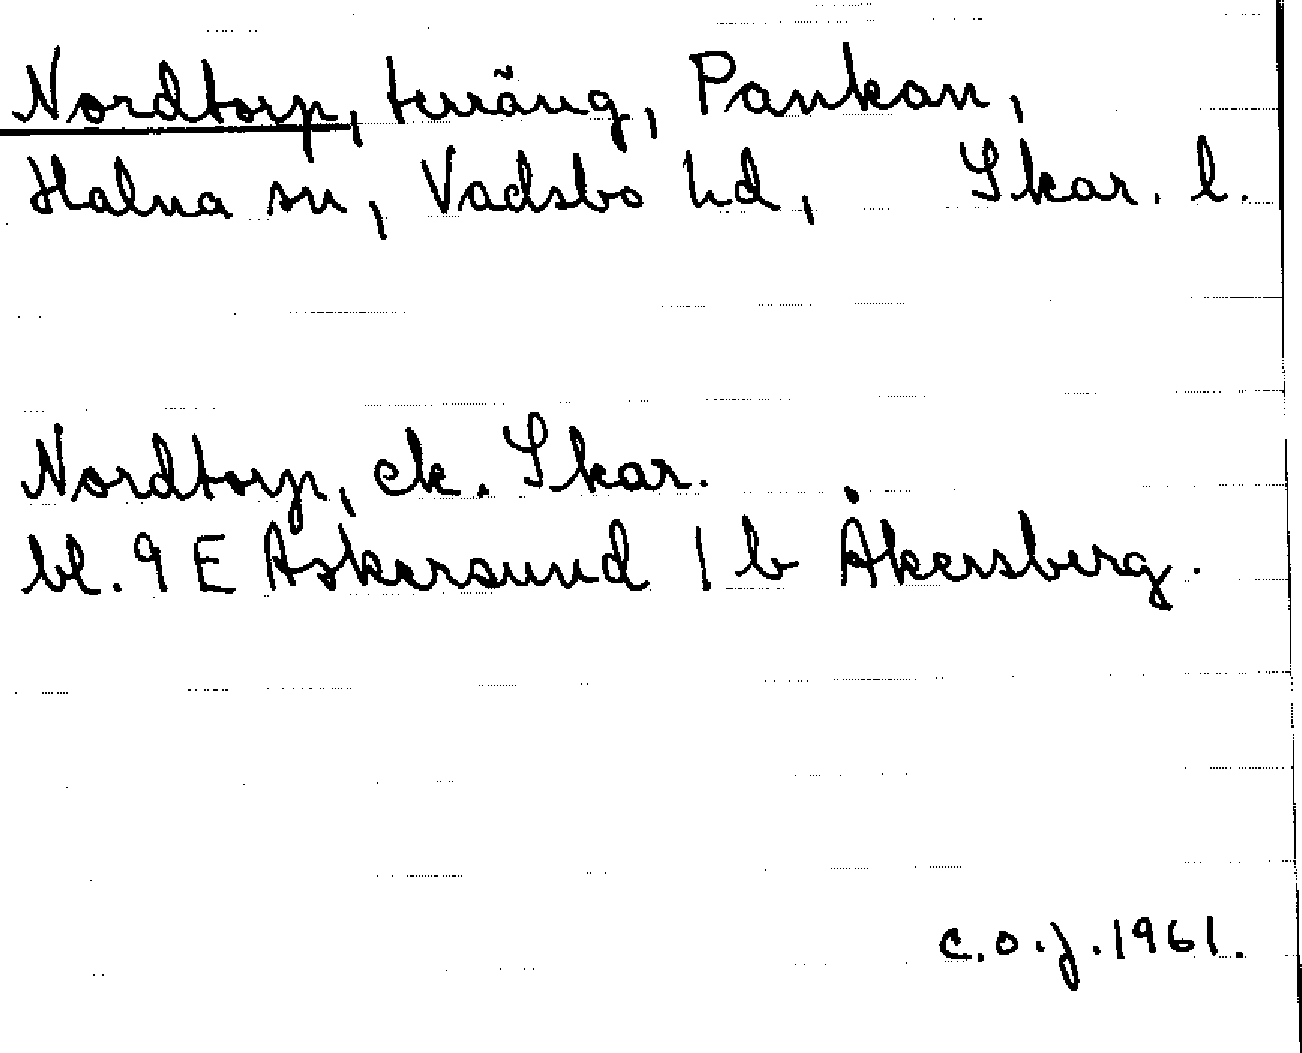 Nordtorp, terräng, Pankan,
Halna sn, Vadsbo hd, Skar. l.
Nordtorp, ek. Skar.
bl. 9 E Askersund 1 b Åkersberg.
c.o.j. 1961.